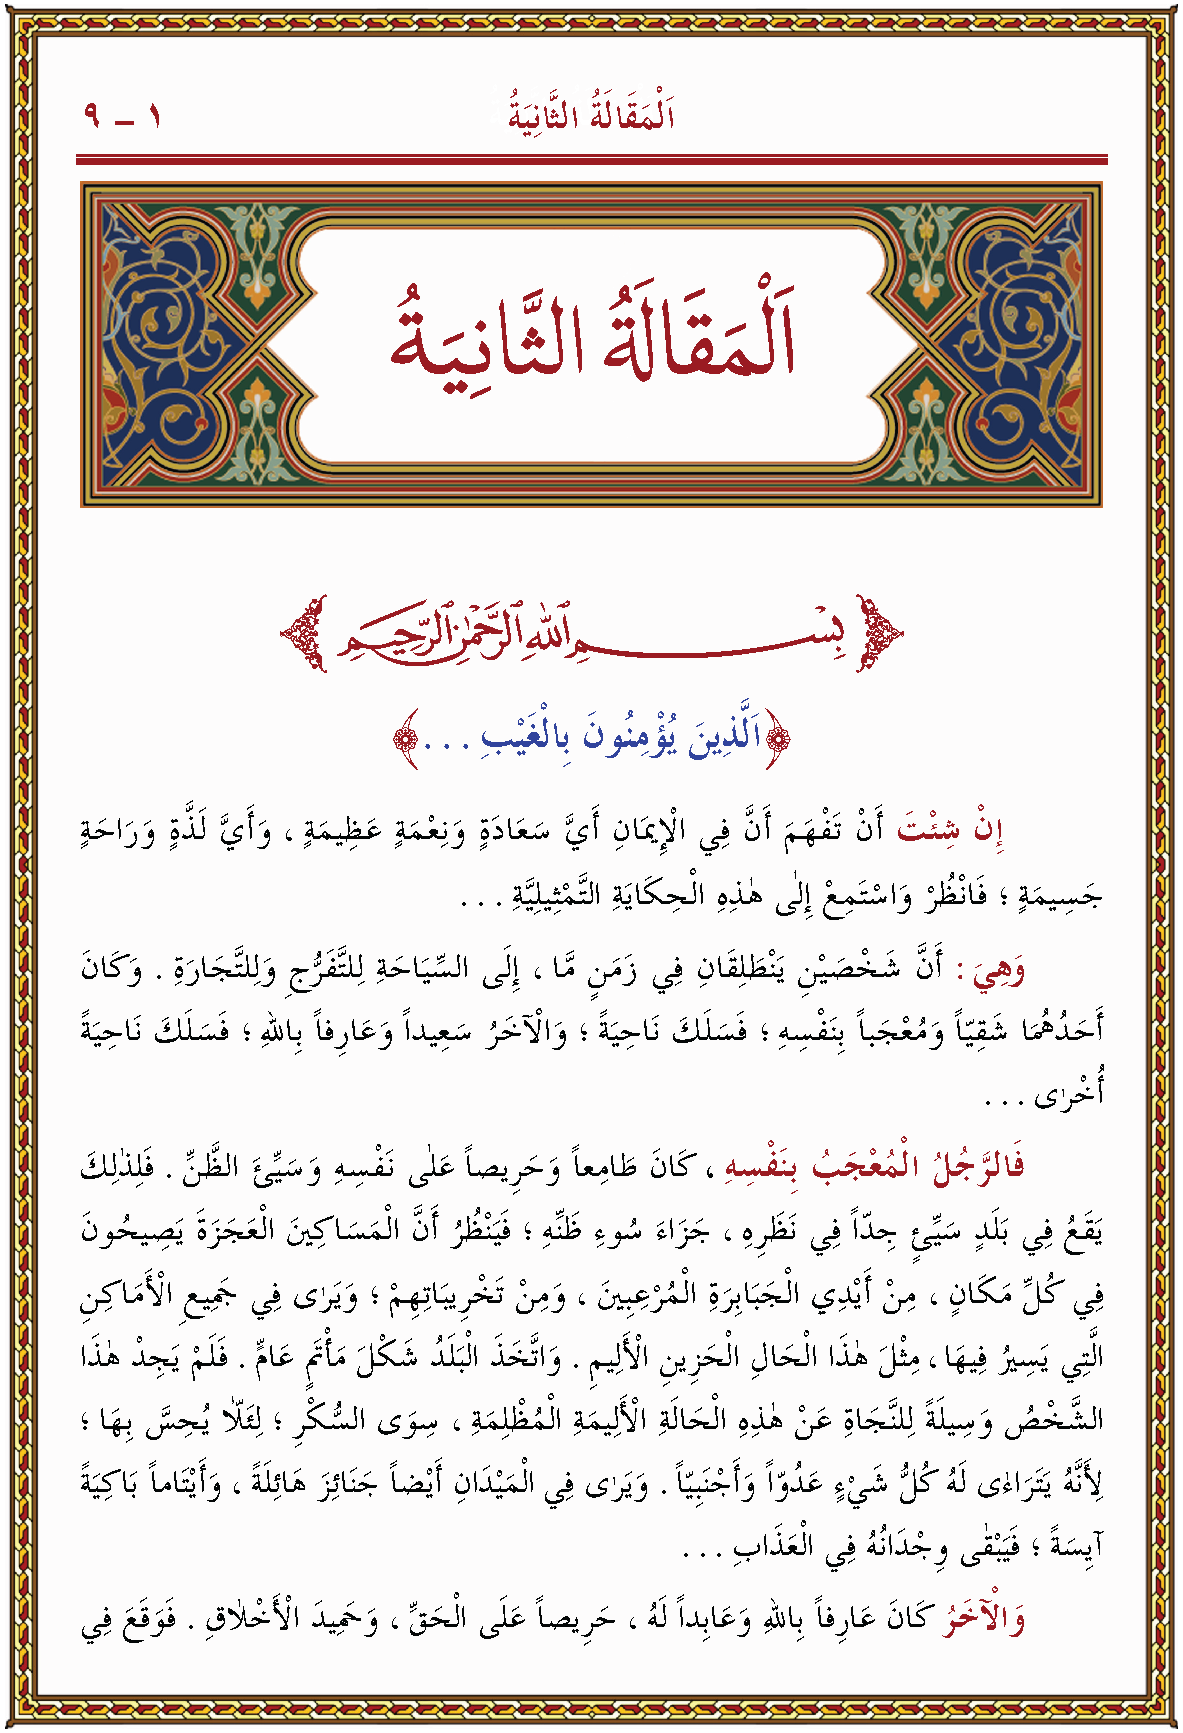 اَلْمَقَالَةُ الثَّانِيَةُ
١ - ٩
اَلْمَقَالَةُ الثَّانِيَةُ
بِسْمِ اللهِ الرَّحْمٰنِ الرَّحِيمِ
﴿اَلَّذِينَ يُؤْمِنُونَ بِالْغَيْبِ . . .﴾
إِنْ شِئْتَ أَنْ تَفْهَمَ أَنَّ فِي الْإِيمَانِ أَيَّ سَعَادَةٍ وَنِعْمَةٍ عَظِيمَةٍ ، وَأَيَّ لَذَّةٍ وَرَاحَةٍ
جَسِيمَةٍ ؛ فَانْظُرْ وَاسْتَمِعْ إِلٰى هٰذِهِ الْحِكَايَةِ التَّمْثِيلِيَّةِ . . .
وَهِيَ : أَنَّ شَخْصَيْنِ يَنْطَلِقَانِ فِي زَمَنٍ مَّا ، إِلَى السِّيَاحَةِ لِلتَّفَرُّجِ وَلِلتَّجَارَةِ . وَكَانَ
أَحَدُهُمَا شَقِيّاً وَمُعْجَباً بِنَفْسِهِ ؛ فَسَلَكَ نَاحِيَةً ؛ وَالْآخَرُ سَعِيداً وَعَارِفاً بِاللهِ ؛ فَسَلَكَ نَاحِيَةً
أُخْرٰى . . .
فَالرَّجُلُ الْمُعْجَبُ بِنَفْسِهِ ، كَانَ طَامِعاً وَحَرِيصاً عَلٰى نَفْسِهِ وَسَيِّئَ الظَّنِّ . فَلِذٰلِكَ
يَقَعُ فِي بَلَدٍ سَيِّئٍ جِدّاً فِي نَظَرِهِ ، جَزَاءَ سُوءِ ظَنِّهِ ؛ فَيَنْظُرُ أَنَّ الْمَسَاكِينَ الْعَجَزَةَ يَصِيحُونَ
فِي كُلِّ مَكَانٍ ، مِنْ أَيْدِي الْجَبَابِرَةِ الْمُرْعِبِينَ ، وَمِنْ تَخْرِيبَاتِهِمْ ؛ وَيَرٰى فِي جَمِيعِ الْأَمَاكِنِ
الَّتِي يَسِيرُ فِيهَا ، مِثْلَ هٰذَا الْحَالِ الْحَزِينِ الْأَلِيمِ . وَاتَّخَذَ الْبَلَدُ شَكْلَ مَأْتَمٍ عَامٍّ . فَلَمْ يَجِدْ هٰذَا
الشَّخْصُ وَسِيلَةً لِلنَّجَاةِ عَنْ هٰذِهِ الْحَالَةِ الْأَلِيمَةِ الْمُظْلِمَةِ ، سِوَى السُّكْرِ ؛ لِئَلَّا يُحِسَّ بِهَا ؛
لِأَنَّهُ يَتَرَاءٰى لَهُ كُلُّ شَيْءٍ عَدُوّاً وَأَجْنَبِيّاً . وَيَرٰى فِي الْمَيْدَانِ أَيْضاً جَنَائِزَ هَائِلَةً ، وَأَيْتَاماً بَاكِيَةً
آيِسَةً ؛ فَيَبْقٰى وِجْدَانُهُ فِي الْعَذَابِ . . .
وَالْآخَرُ كَانَ عَارِفاً بِاللهِ وَعَابِداً لَهُ ، حَرِيصاً عَلَى الْحَقِّ ، وَحَمِيدَ الْأَخْلَاقِ . فَوَقَعَ فِي